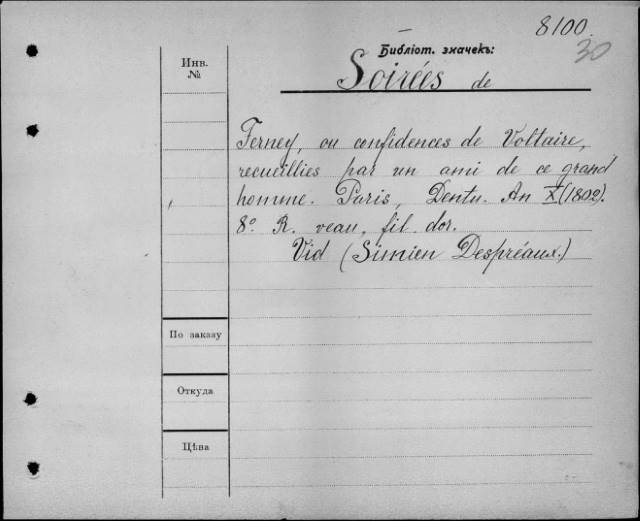 8100.
30
Библіот. значекъ:
Инв.
№
Soirées de
Ferney, ou confidences de Voltaire,
recueillies par un ami de ce grand
homme. Paris, Dentu. An X (1802).
8º. R. veau, fil. dor.
Vid (Simien Despréaux.)
По заказу
Откуда
Цѣна